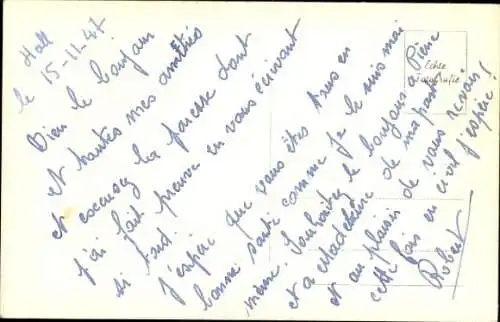 Hall
le 15-11-47
Bien le bonjour
et toutes mes amitiés
et excusez la paresse dont
j'ai fait preuve en vous écrivant
si tard.
J'espère que vous êtes tous en
bonne santé comme je le suis moi
même. Souhaitez le bonjour à Pierre
et a Madeleine de ma part
et au plaisir de vous revoir
cette fois en civil j'espère!
Robert
Echte
Fotografie